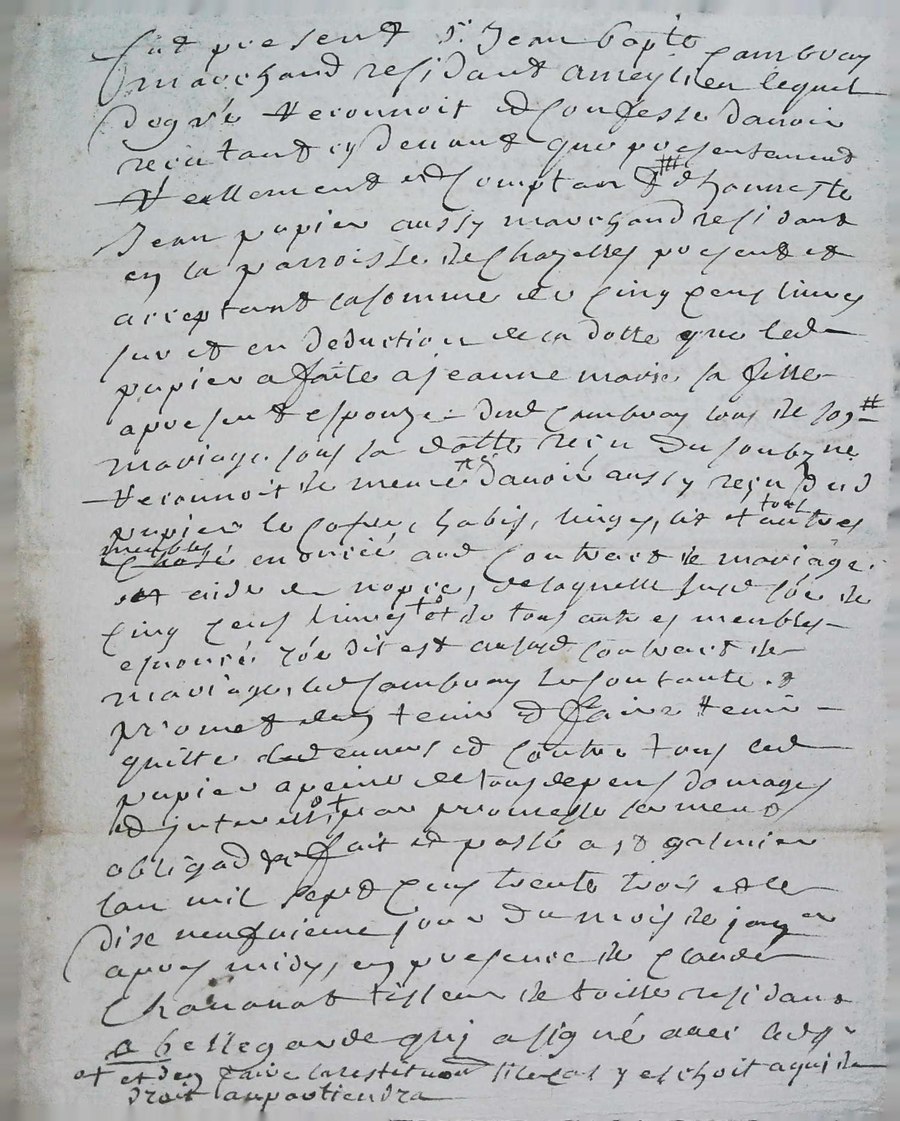 fut present Sr Jean bapte Cambray
marchand residant a meylieu lequel
de gré reconnoit et confesse davoir
reçu tant cy devant que presentement
reellement et comptan d honneste
Jean papier aussy marchand residant
en la parroisse de Chazelles present et
acceptant la somme de cinq cens livres
sur et en deduction de la dotte que led
papier a faite a jeanne marie sa fille
a present espouze dud Cambray lors de son
mariage sous la dotte reçu du soubzne
reconnoit de meme davoir aussy reçu dud
papier le cofre, habis, linges, lit + tous autres
meubles
enoncé aud Contract de mariage
et aide de nopce, de laquelle susd soe de
cinq cens livres + et de tous autres meubles
enoncé coe dit est ausud contract de
mariage, led Cambray se contante. et
promet den tenir et faire tenir
quitte envers et contre tous led
papier a peine de tous depens domages
et interest + par promesse serment
obligaon fait et passé a st galmier
lan mil sept cens trente trois et le
dise neufvieme jour du mois de janver
apres midy, en presence de claude
Chananat tisseur de toille residant
a bellegarde qui a signé avec led
o+ et den faire la restituon sile cas y eschoit a qui de
droit appartiendra